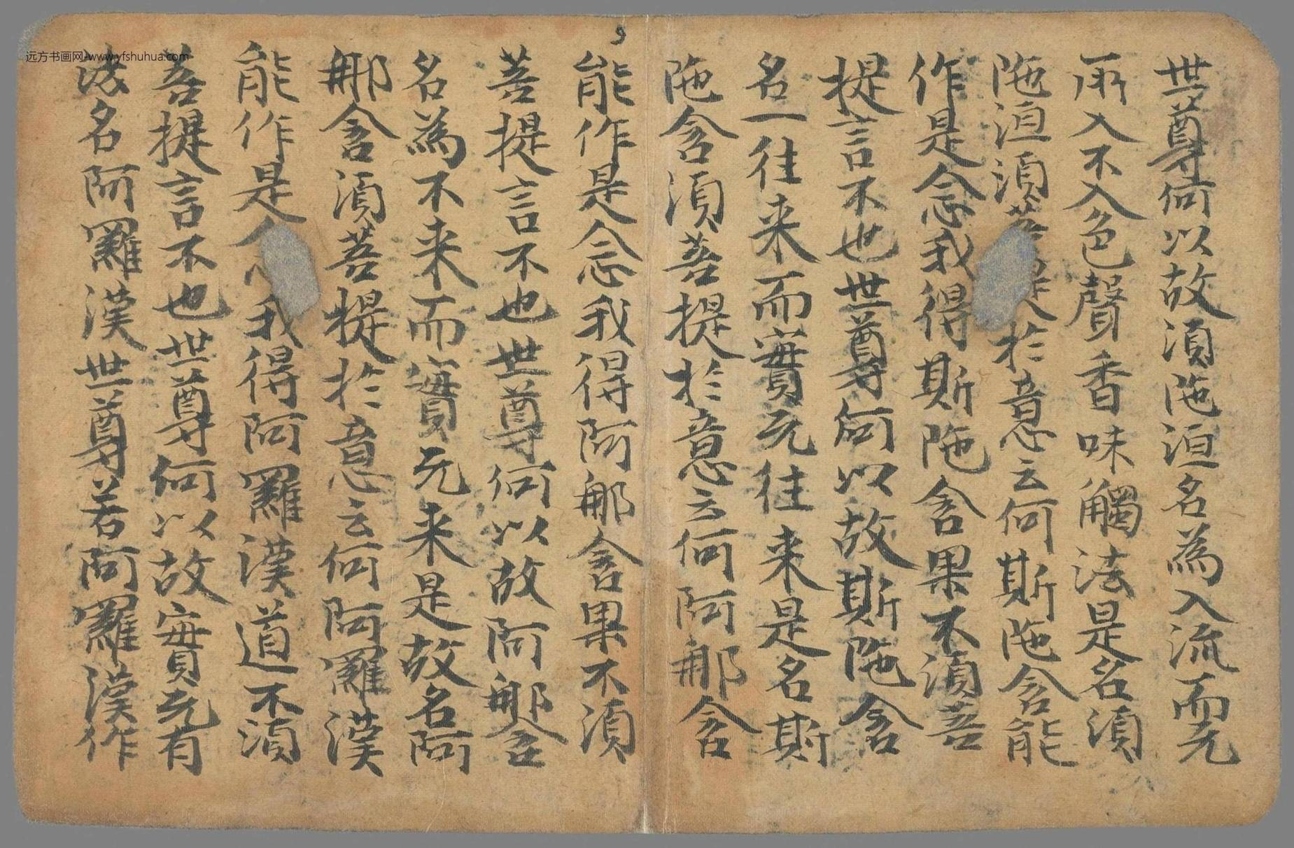 远方书画网-www.yfshuhua.com
世尊何以故須陁洹名為入流而无
所入不入色聲香味觸法是名須
陁洹須菩提於意云何斯陁含能
作是念我得斯陁含果不須菩
提言不也世尊何以故斯陁含
名一往来而實无往来是名斯
陁含須菩提於意云何阿那含
能作是念我得阿那含果不須
菩提言不也世尊何以故阿那含
名為不来而實无来是故名阿
那含須菩提於意云何阿羅漢
能作是念我得阿羅漢道不須
菩提言不也世尊何以故實无有
法名阿羅漢世尊若阿羅漢作